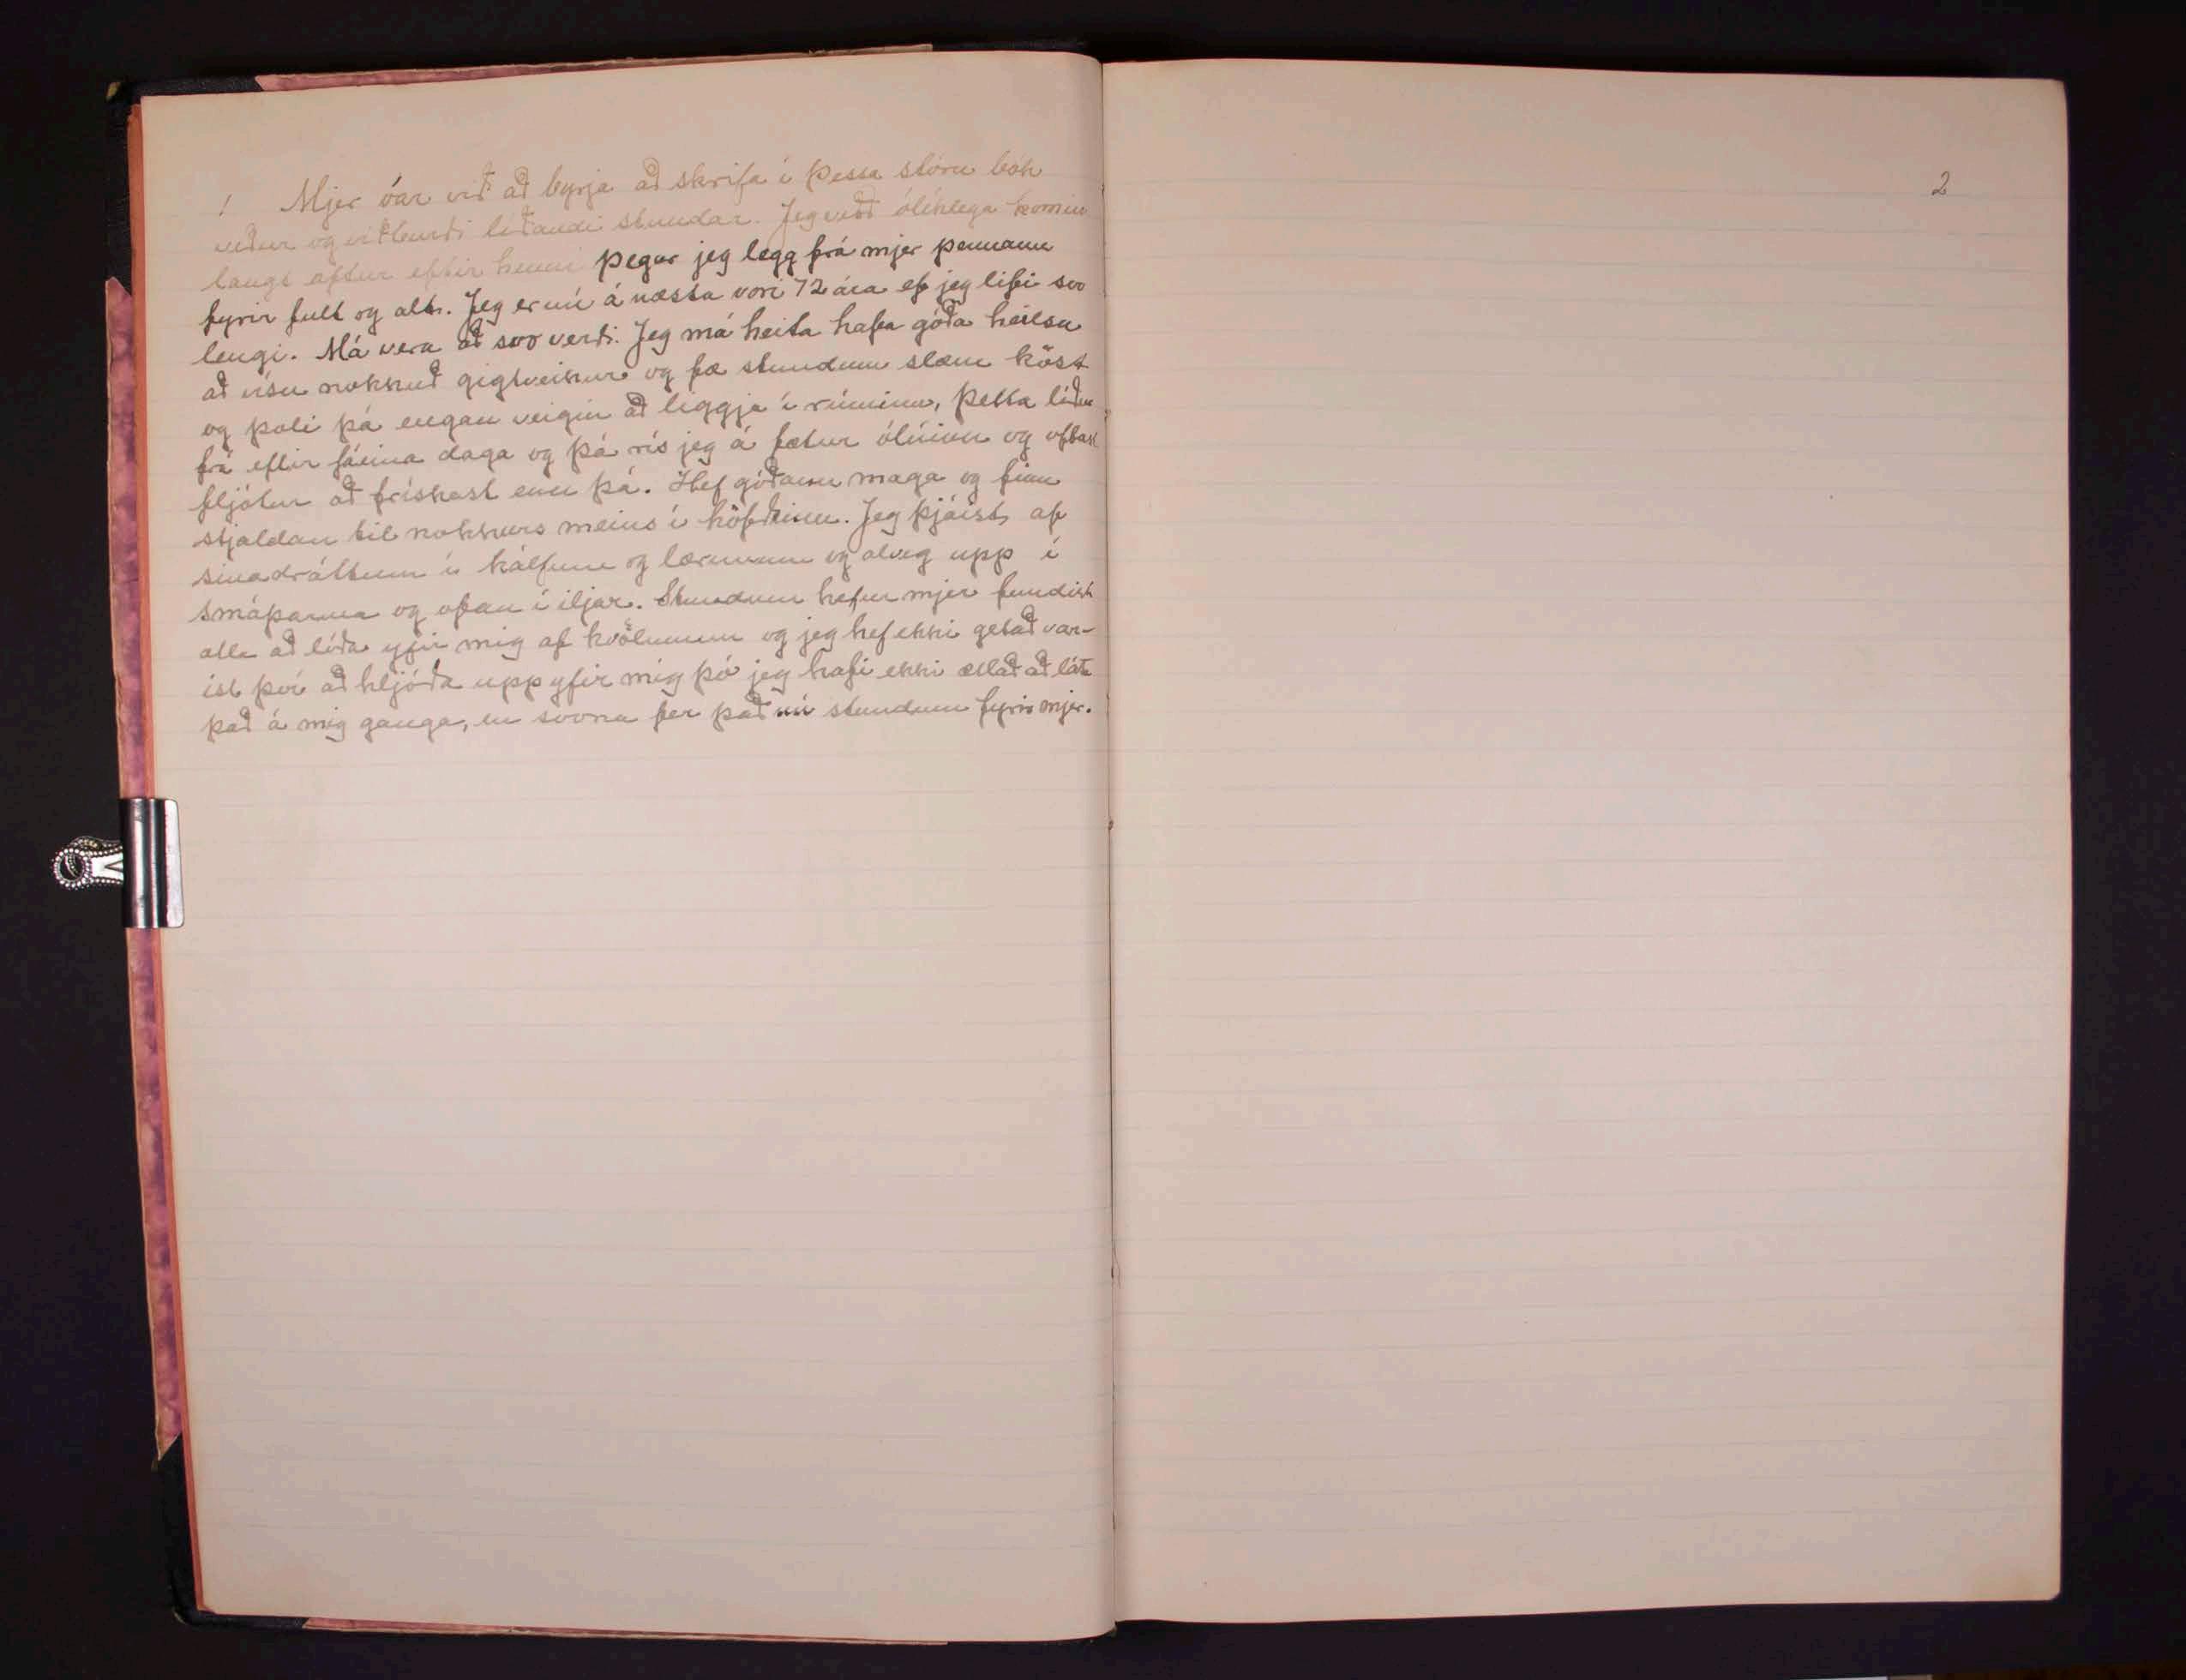 1 Mjer óar við að byrja að skrifa í þessa stóru bók
veður og viðburði líðandi stundar. Jeg verð ólíklega komin
langt aftur eftir henni þegar jeg legg frá mjer pennann
fyrir fult og alt. Jeg er nú á næsta vori 72 ára ef jeg lifi svo
lengi. Má vera að svo verði. Jeg má heita hafa góða heilsu
að vísu nokkuð gigtveikur og fæ stundum slæm köst
og þoli þá engan veigin að liggja í rúminu, þetta líður
frá eftir fáeina daga og þá rís jeg á fætur ólúinn og oftast
fljótur að frískast enn þá. Hef góðann maga og finn
sjaldan til nokkurs meins í höfðinu. Jeg þjáist af
sinadráttum í kálfum og lærunum og alveg upp í
smáþarma og ofan í iljar. Stundum hefur mjer fundist
ætla að líða yfir mig af kvölunum og jeg hef ekki getað var-
ist því að hljóða upp yfir mig þó jeg hafi ekki ætlað að láta
það á mig ganga, en svona fer það nú stundum fyrir mjer.
2